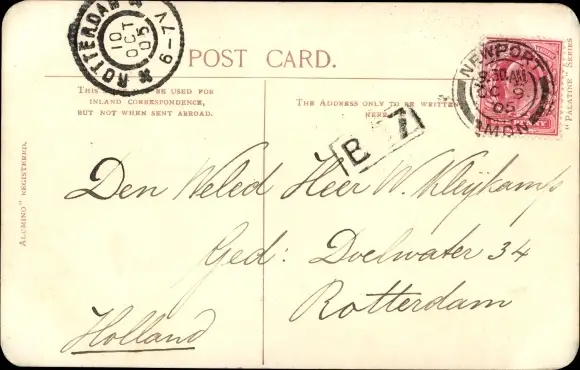 ROTTERDAM
7-9 V
10
OCT
05
POST CARD.
NEWPORT
OC 9
05
MON
THIS
BE USED FOR
INLAND CORRESPONDENCE,
BUT NOT WHEN SENT ABROAD.
THE ADDRESS ONLY TO BE WRITTEN
HERE
"PALATINE" SERIES
ALUMINO" REGISTERED.
B
Den Weled Heer W. Kleykamp
Ged: Doelwater 34
Rotterdam
Holland